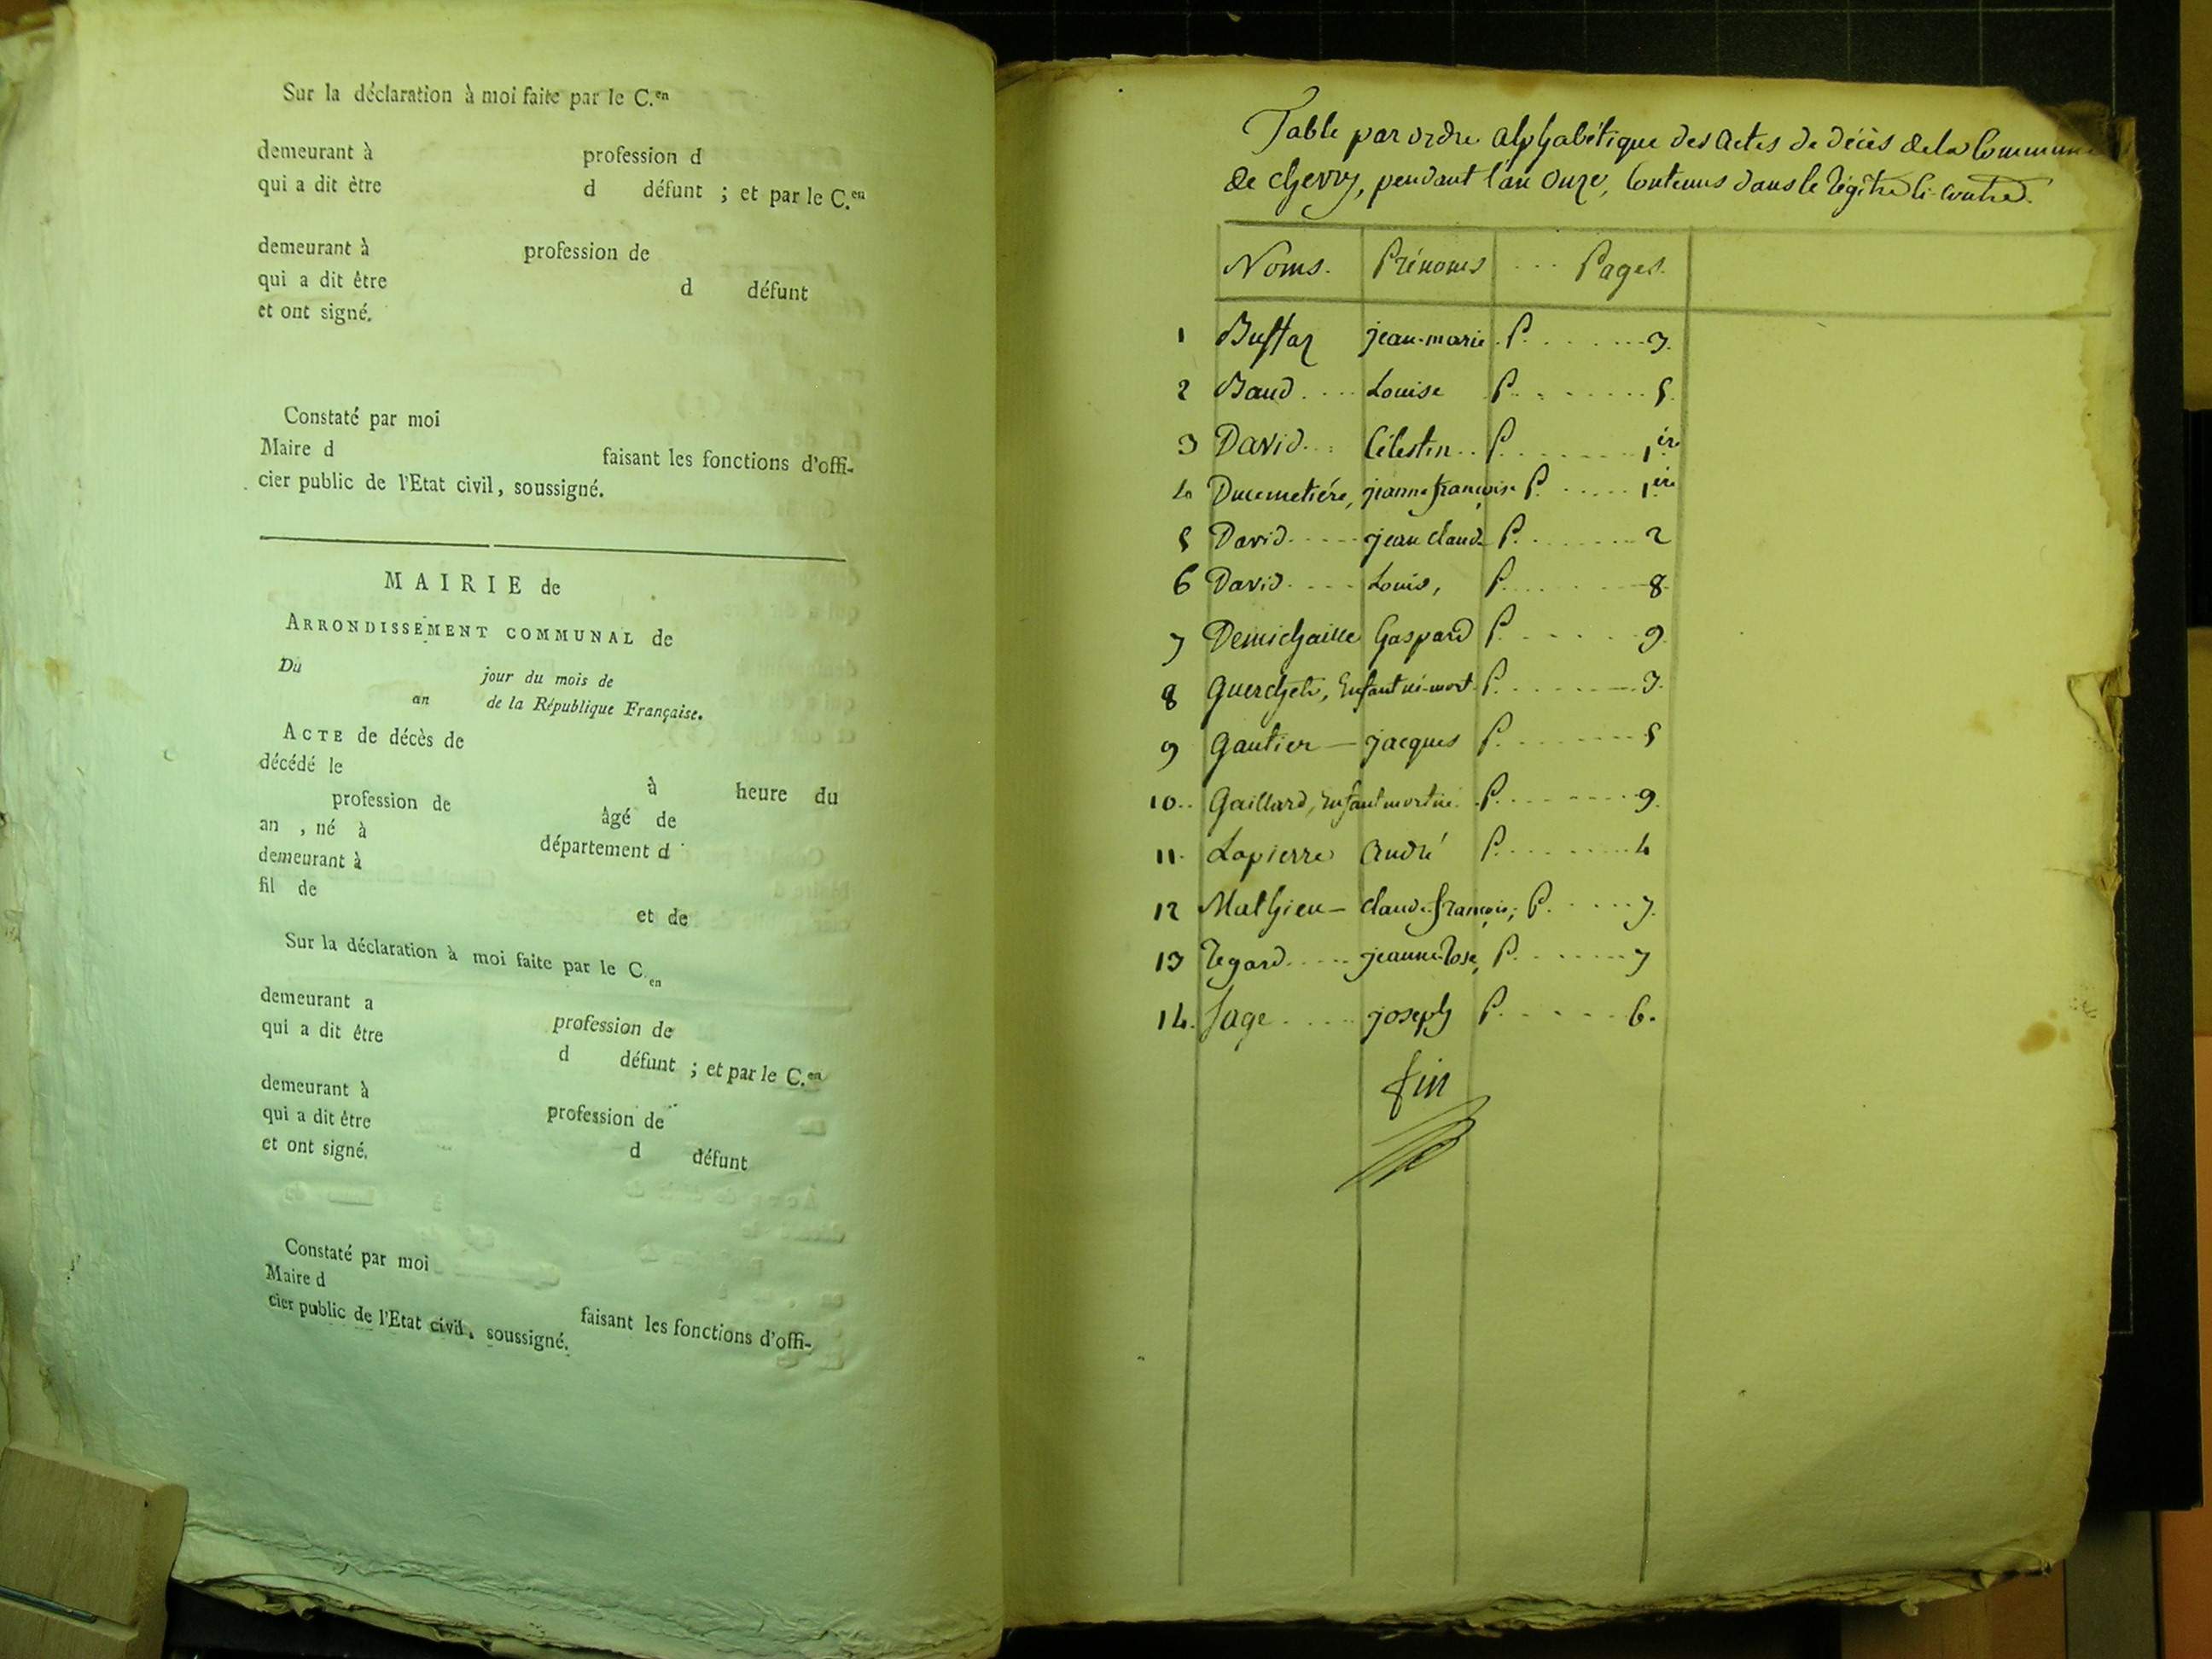 Sur la déclaration à moi faite par le C.en
demeurant à profession d
qui a dit être d défunt ; et par le C.en
demeurant à profession de
qui a dit être d défunt
et ont signé.
Constaté par moi
Maire d faisant les fonctions d'offi-
cier public de l'Etat civil, soussigné.
MAIRIE de
ARRONDISSEMENT COMMUNAL de
Du jour du mois de
an de la République Française.
ACTE de décès de
décédé le à heure du
profession de âgé de
an , né à département d
demeurant à
fil de et de
Sur la déclaration à moi faite par le C.en
demeurant a profession de
qui a dit être d défunt ; et par le C.en
demeurant à profession de
qui a dit être d défunt
et ont signé.
Constaté par moi
Maire d faisant les fonctions d'offi-
cier public de l'Etat civil, soussigné.
Table par ordre alphabétique des actes de décès de la Commune
de chevry, pendant l'an onze, contenus dans le régître ci-contre.
Noms. Prénoms ... Pages.
1 jean-marie P. 3.
2 Baud Louise P. 5.
3 David Célestin P. 1ère
4 Ducimetiére, jeanne françoise P. 1ère
5 David jean claude P. 2
6 David Louis, P. 8
7 Demichaille Gaspard P. 9
8 Enfant né-mort P. 3.
9 Gautier jacques P. 5
10 Gaillard, Enfant mort né P. 9.
11 Lapierre André P. 4
12 Mathieu claude françois, P. 7.
13 Regard jeanne Rose, P. 7
14. Sage joseph P. 6.
fin